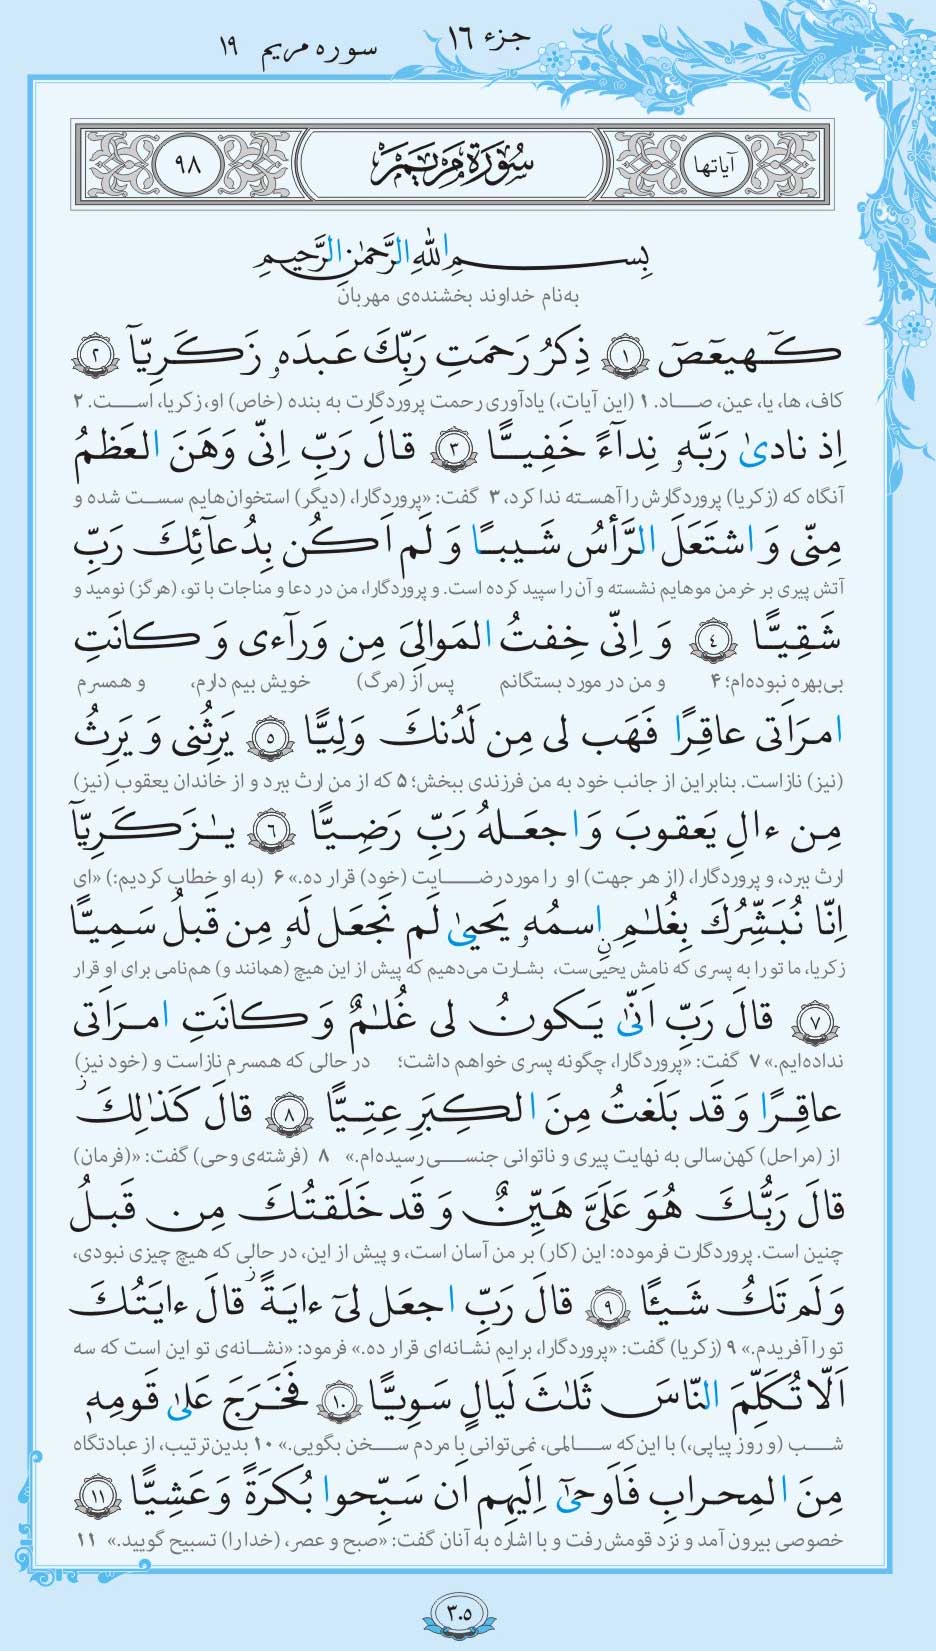 جزء ١٦
سوره مریم ١٩
آیاتها
سُورَة مَريَم
٩٨
بِسمِ اللهِ الرَّحمٰنِ الرَّحیمِ
به‌نام خداوند بخشنده‌ی مهربان
كٓهيعٓصٓ ١ ذِكرُ رَحمَتِ رَبِّكَ عَبدَه‌و زَكَرِيّآ ٢
کاف، ها، یا، عین، صاد. ۱ (این آیات،) یادآوری رحمت پروردگارت به بنده (خاص) او، زکریا، است. ۲
اِذ نادىٰ رَبَّه‌و نِدآءً خَفِيًّا ٣ قالَ رَبِّ اِنّى وَهَنَ العَظمُ
آنگاه که (زکریا) پروردگارش را آهسته ندا کرد، ۳ گفت: «پروردگارا، (دیگر) استخوان‌هایم سست شده و
مِنّى وَ اشتَعَلَ الرَّأسُ شَيبًا وَ لَم اَكُن بِدُعآئِكَ رَبِّ
آتش پیری بر خرمن موهایم نشسته و آن را سپید کرده است. و پروردگارا، من در دعا و مناجات با تو، (هرگز) نومید و
شَقِيًّا ٤ وَ اِنّى خِفتُ المَوالِىَ مِن وَرآءى وَ كانَتِ
بی‌بهره نبوده‌ام؛ ۴ و من در مورد بستگانم پس از (مرگ) خویش بیم دارم، و همسرم
امرَاَتى عاقِرًا فَهَب لى مِن لَدُنكَ وَلِيًّا ٥ يَرِثُنى وَ يَرِثُ
(نیز) نازاست. بنابراین از جانب خود به من فرزندی ببخش؛ ۵ که از من ارث ببرد و از خاندان یعقوب (نیز)
مِن ءالِ يَعقوبَ وَ اجعَلهُ رَبِّ رَضِيًّا ٦ يـٰزَكَرِيّآ
ارث ببرد، و پروردگارا، (از هر جهت) او را مورد رضایت (خود) قرار ده.» ۶ (به او خطاب کردیم:) «ای
اِنّا نُبَشِّرُكَ بِغُلـٰمٍ اِسمُه‌و يَحيىٰ لَم نَجعَل لَه‌و مِن قَبلُ سَمِيًّا
زکریا، ما تو را به پسری که نامش یحیی‌ست، بشارت می‌دهیم که پیش از این هیچ (همانند و) هم‌نامی برای او قرار
٧ قالَ رَبِّ اَنّىٰ يَكونُ لى غُلـٰمٌ وَ كانَتِ امرَاَتى
نداده‌ایم.» ۷ گفت: «پروردگارا، چگونه پسری خواهم داشت؛ در حالی که همسرم نازاست و (خود نیز)
عاقِرًا وَ قَد بَلَغتُ مِنَ الكِبَرِ عِتِيًّا ٨ قالَ كَذٰلِكَ
از (مراحل) کهن‌سالی به نهایت پیری و ناتوانی جنسی رسیده‌ام.» ۸ (فرشته‌ی وحی) گفت: «(فرمان)
قالَ رَبُّكَ هُوَ عَلَىَّ هَيِّنٌ وَ قَد خَلَقتُكَ مِن قَبلُ
چنین است. پروردگارت فرموده: این (کار) بر من آسان است، و پیش از این، در حالی که هیچ چیزی نبودی،
وَ لَم تَكُ شَيئًا ٩ قالَ رَبِّ اجعَل لىٓ ءايَةً قالَ ءايَتُكَ
تو را آفریدم.» ۹ (زکریا) گفت: «پروردگارا، برایم نشانه‌ای قرار ده.» فرمود: «نشانه‌ی تو این است که سه
اَلّا تُكَلِّمَ النّاسَ ثَلـٰثَ لَيالٍ سَوِيًّا ١٠ فَخَرَجَ عَلىٰ قَومِه
شب (و روز پیاپی،) با این‌که سالمی، نمی‌توانی با مردم سخن بگویی.» ۱۰ بدین‌ترتیب، از عبادتگاه
مِنَ المِحرابِ فَاَوحىٰٓ اِلَيهِم اَن سَبِّحوا بُكرَةً وَ عَشِيًّا ١١
خصوصی بیرون آمد و نزد قومش رفت و با اشاره به آنان گفت: «صبح و عصر، (خدا را) تسبیح گویید.» ۱۱
٣٠٥